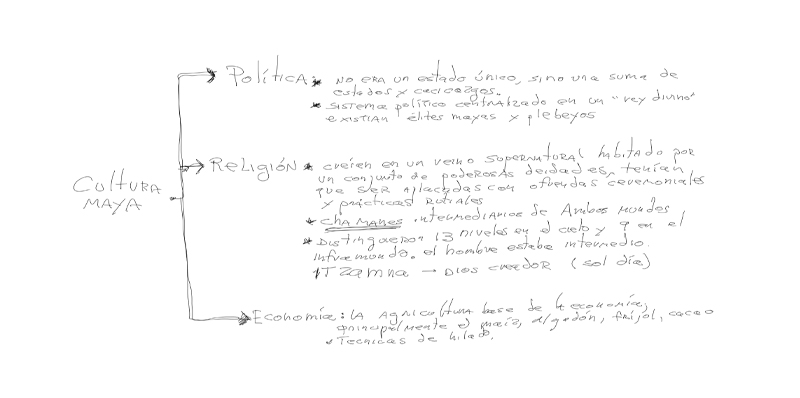 Política: * NO ERA UN estado único, sino una suma de
estados y cacicazgos.
* SISTEMA político centralizado en un "rey divino"
EXISTÍAN élites mayas y plebeyos
CULTURA
MAYA
Religión * creíen en un reino supernatural habitado por
un conjunto de poderosas deidades, tenían
que SER Aplacadas con ofrendas ceremoniales
y prácticas rutiales
* CHAMANES intermediarios de Ambos mundos
* Distingueron 13 niveles en el cielo y 9 en el
inframundo. el hombre estaba intermedio.
ITzamna → Dios creador (sol día)
Economía: LA Agricultura base de la economía,
principalmente el maíz, algodón, frijol, cacao
* Tecnicas de hilado.